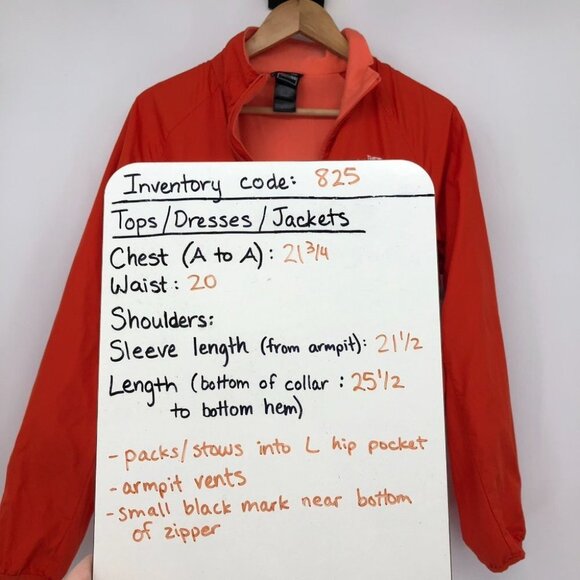 Inventory code: 825
Tops/Dresses/Jackets
Chest (A to A): 21 3/4
Waist: 20
Shoulders:
Sleeve length (from armpit): 21 1/2
Length (bottom of collar : 25 1/2
to bottom hem)
- packs/stows into L hip pocket
- armpit vents
- small black mark near bottom
of zipper